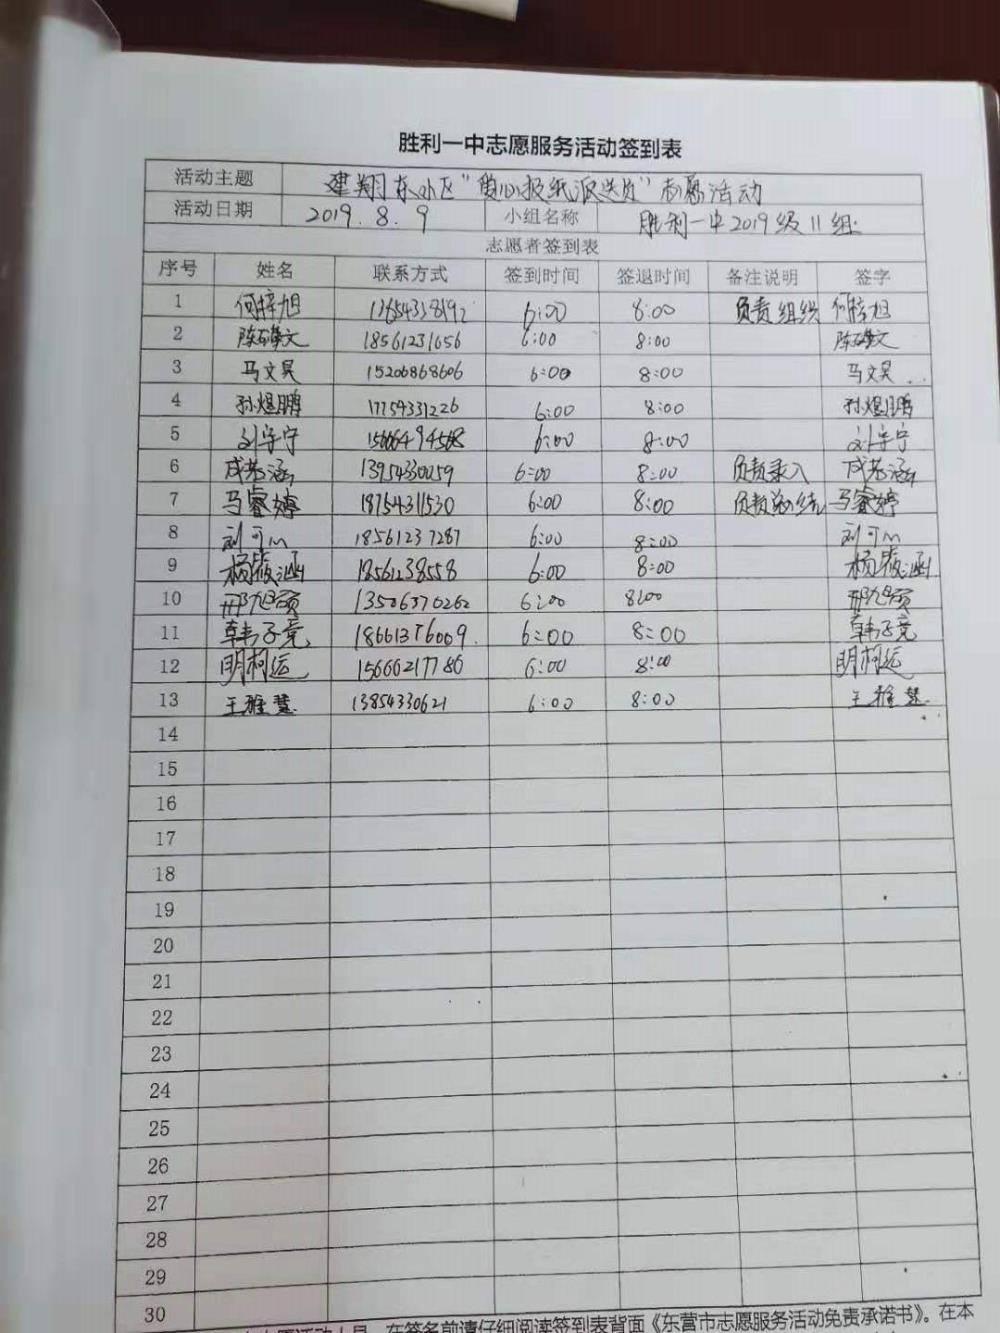 胜利一中志愿服务活动签到表
活动主题 建翔东小区"爱心报纸派送员"志愿活动
活动日期 2019.8.9 小组名称 胜利一中2019级11组
志愿者签到表
序号 姓名 联系方式 签到时间 签退时间 备注说明 签字
1 何梓旭 6:00 8:00 负责组织 何梓旭
2 18561231656 6:00 8:00
3 马文昊 15206868606 6:00 8:00 马文昊
4 孙煜鹏 17754331226 6:00 8:00 孙煜鹏
5 刘宇宁 6:00 8:00 刘宇宁
6 13954330059 6:00 8:00 负责录入
7 马睿婷 18754311530 6:00 8:00 负责总结 马睿婷
8 刘可心 18561237287 6:00 8:00 刘可心
9 杨筱涵 18561238558 6:00 8:00 杨筱涵
10 邢旭硕 13506370262 6:00 8:00 邢旭硕
11 韩子竞 18661376009 6:00 8:00 韩子竞
12 明柯运 15666217786 6:00 8:00 明柯运
13 王雅慧 13854330621 6:00 8:00 王雅慧
14
15
16
17
18
19
20
21
22
23
24
25
26
27
28
29
30
在签名前请仔细阅读签到表背面《东营市志愿服务活动免责承诺书》。在本